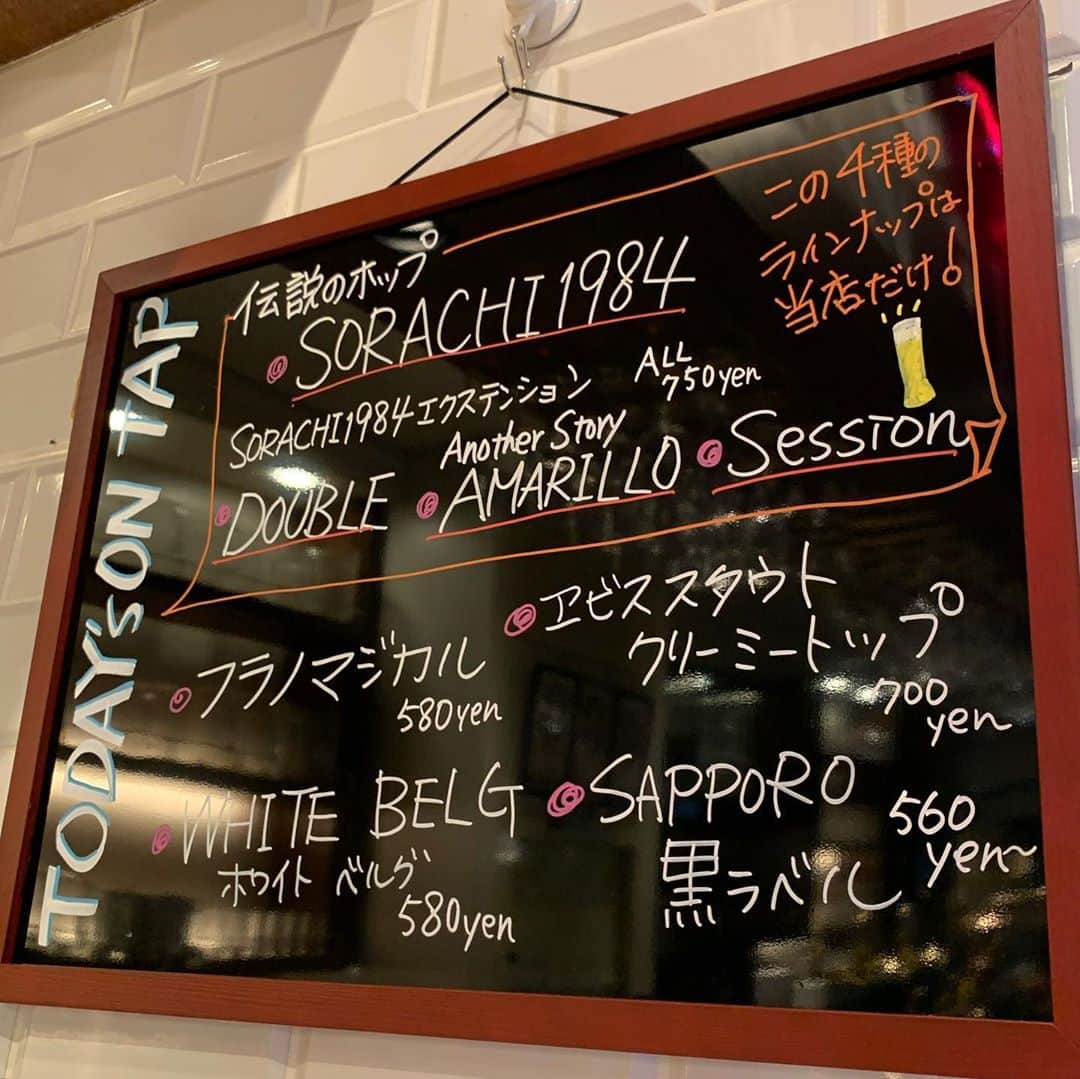 TODAY'S ON TAP
伝説のホップ
SORACHI 1984
この4種の
ラインナップは
当店だけ!
ALL
750yen
SORACHI1984エクステンション
DOUBLE
Another Story
AMARILLO
Session
ヱビススタウト
クリーミートップ
700
yen~
フラノマジカル
580yen
WHITE BELG
ホワイト ベルグ
580yen
SAPPORO
黒ラベル
560
yen~